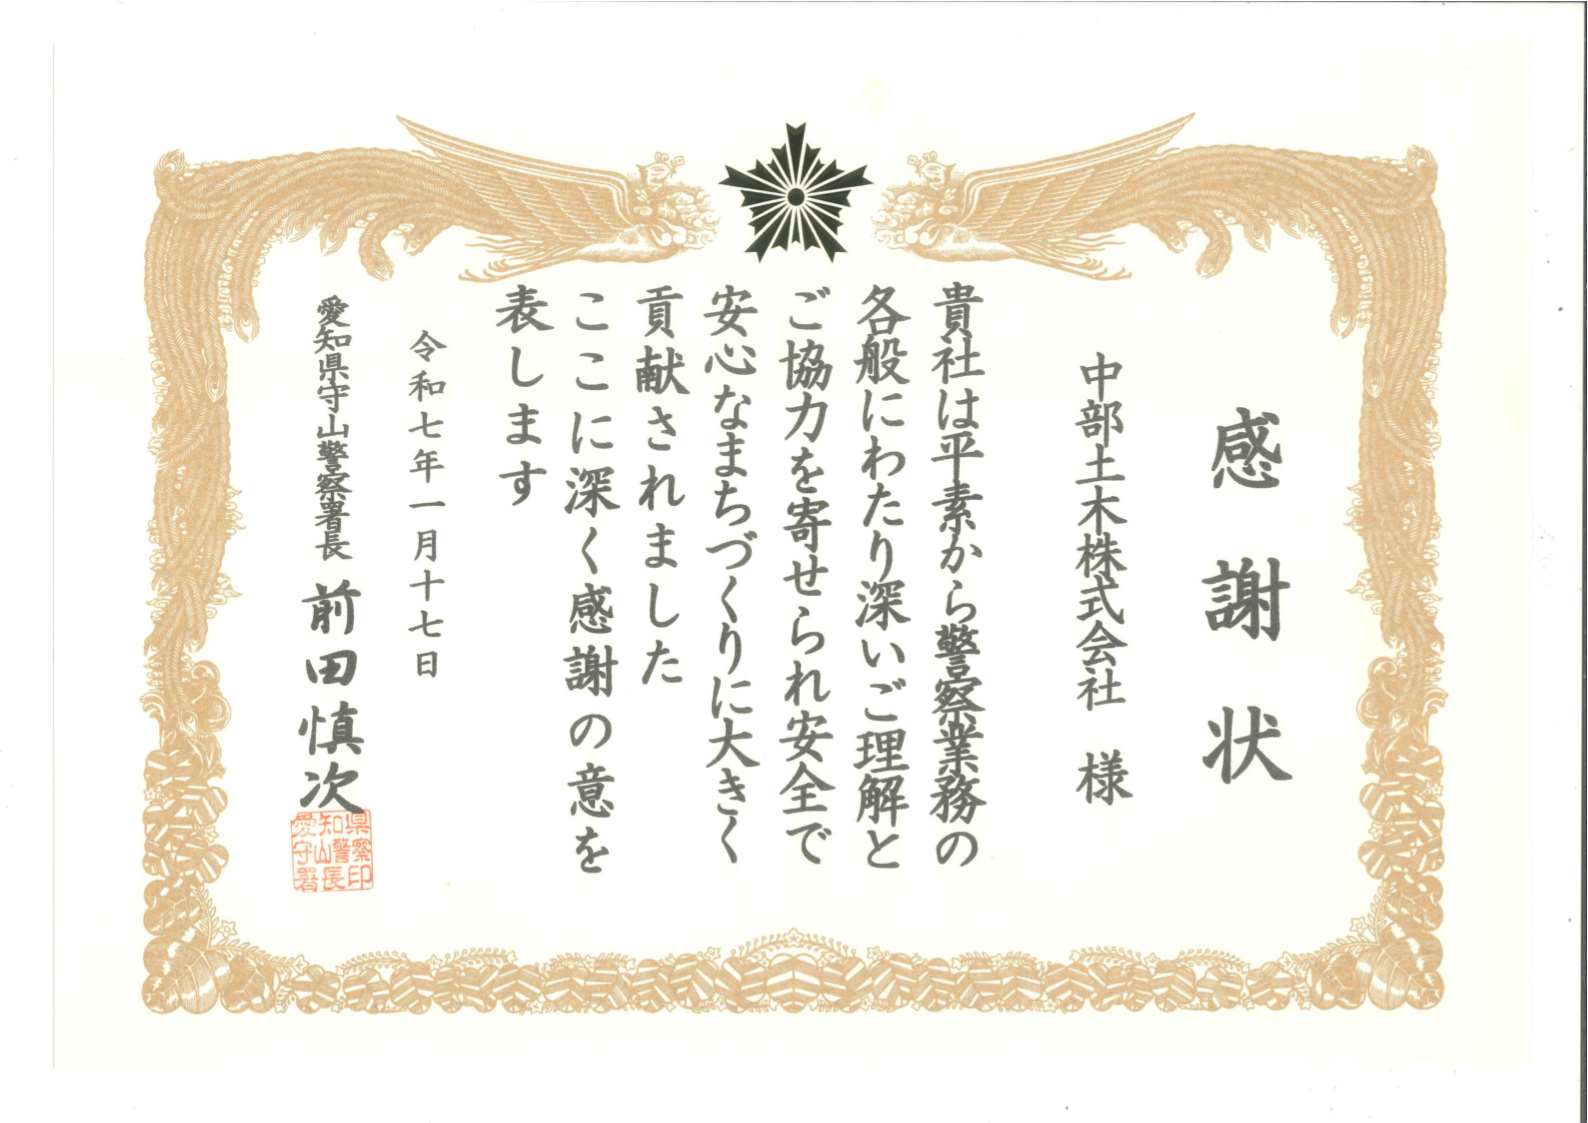 感謝状
中部土木株式会社 様
貴社は平素から警察業務の
各般にわたり深いご理解と
ご協力を寄せられ安全で
安心なまちづくりに大きく
貢献されました
ここに深く感謝の意を
表します
令和七年一月十七日
愛知県守山警察署長 前田慎次
愛知県
守山警察
署長印